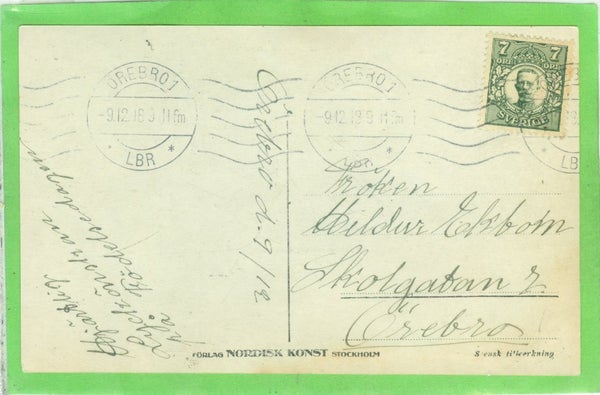 ÖREBRO 1
-9.12.18 9 11 fm
LBR *
ÖREBRO 1
-9.12.18 9 11 fm
LBR *
7 7
ÖRE ÖRE
SVERIGE
Örebro d. 9/12
Hjärtlig
Lyckönskan
på Födelsedagen
Fröken
Hildur Ekbom
Skolgatan 2
Örebro
FÖRLAG NORDISK KONST STOCKHOLM
Svensk tillverkning